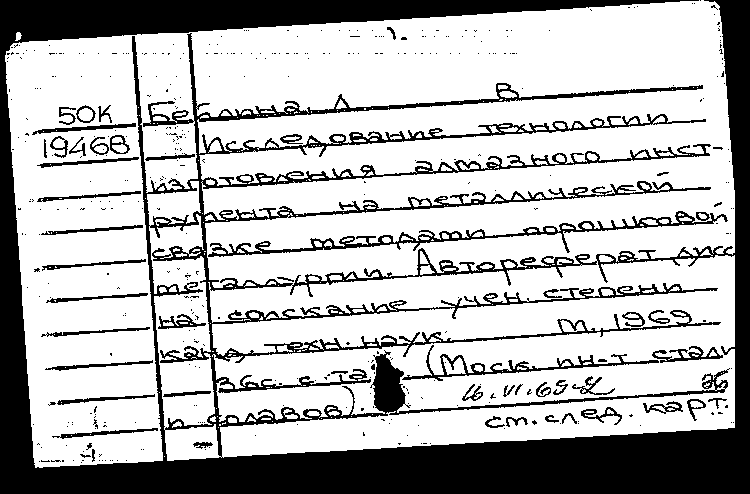 50К Беблина, Л В
19468 Исследование технологии
изготовления алмазного инст-
румента на металлической
связке методами порошковой
металлургии. Автореферат дисс
на соискание учен. степени
канд. техн. наук. М., 1969.
36с. с та (Моск. ин-т стали
и сплавов). 16.VI.69-2 26
см. след. карт.